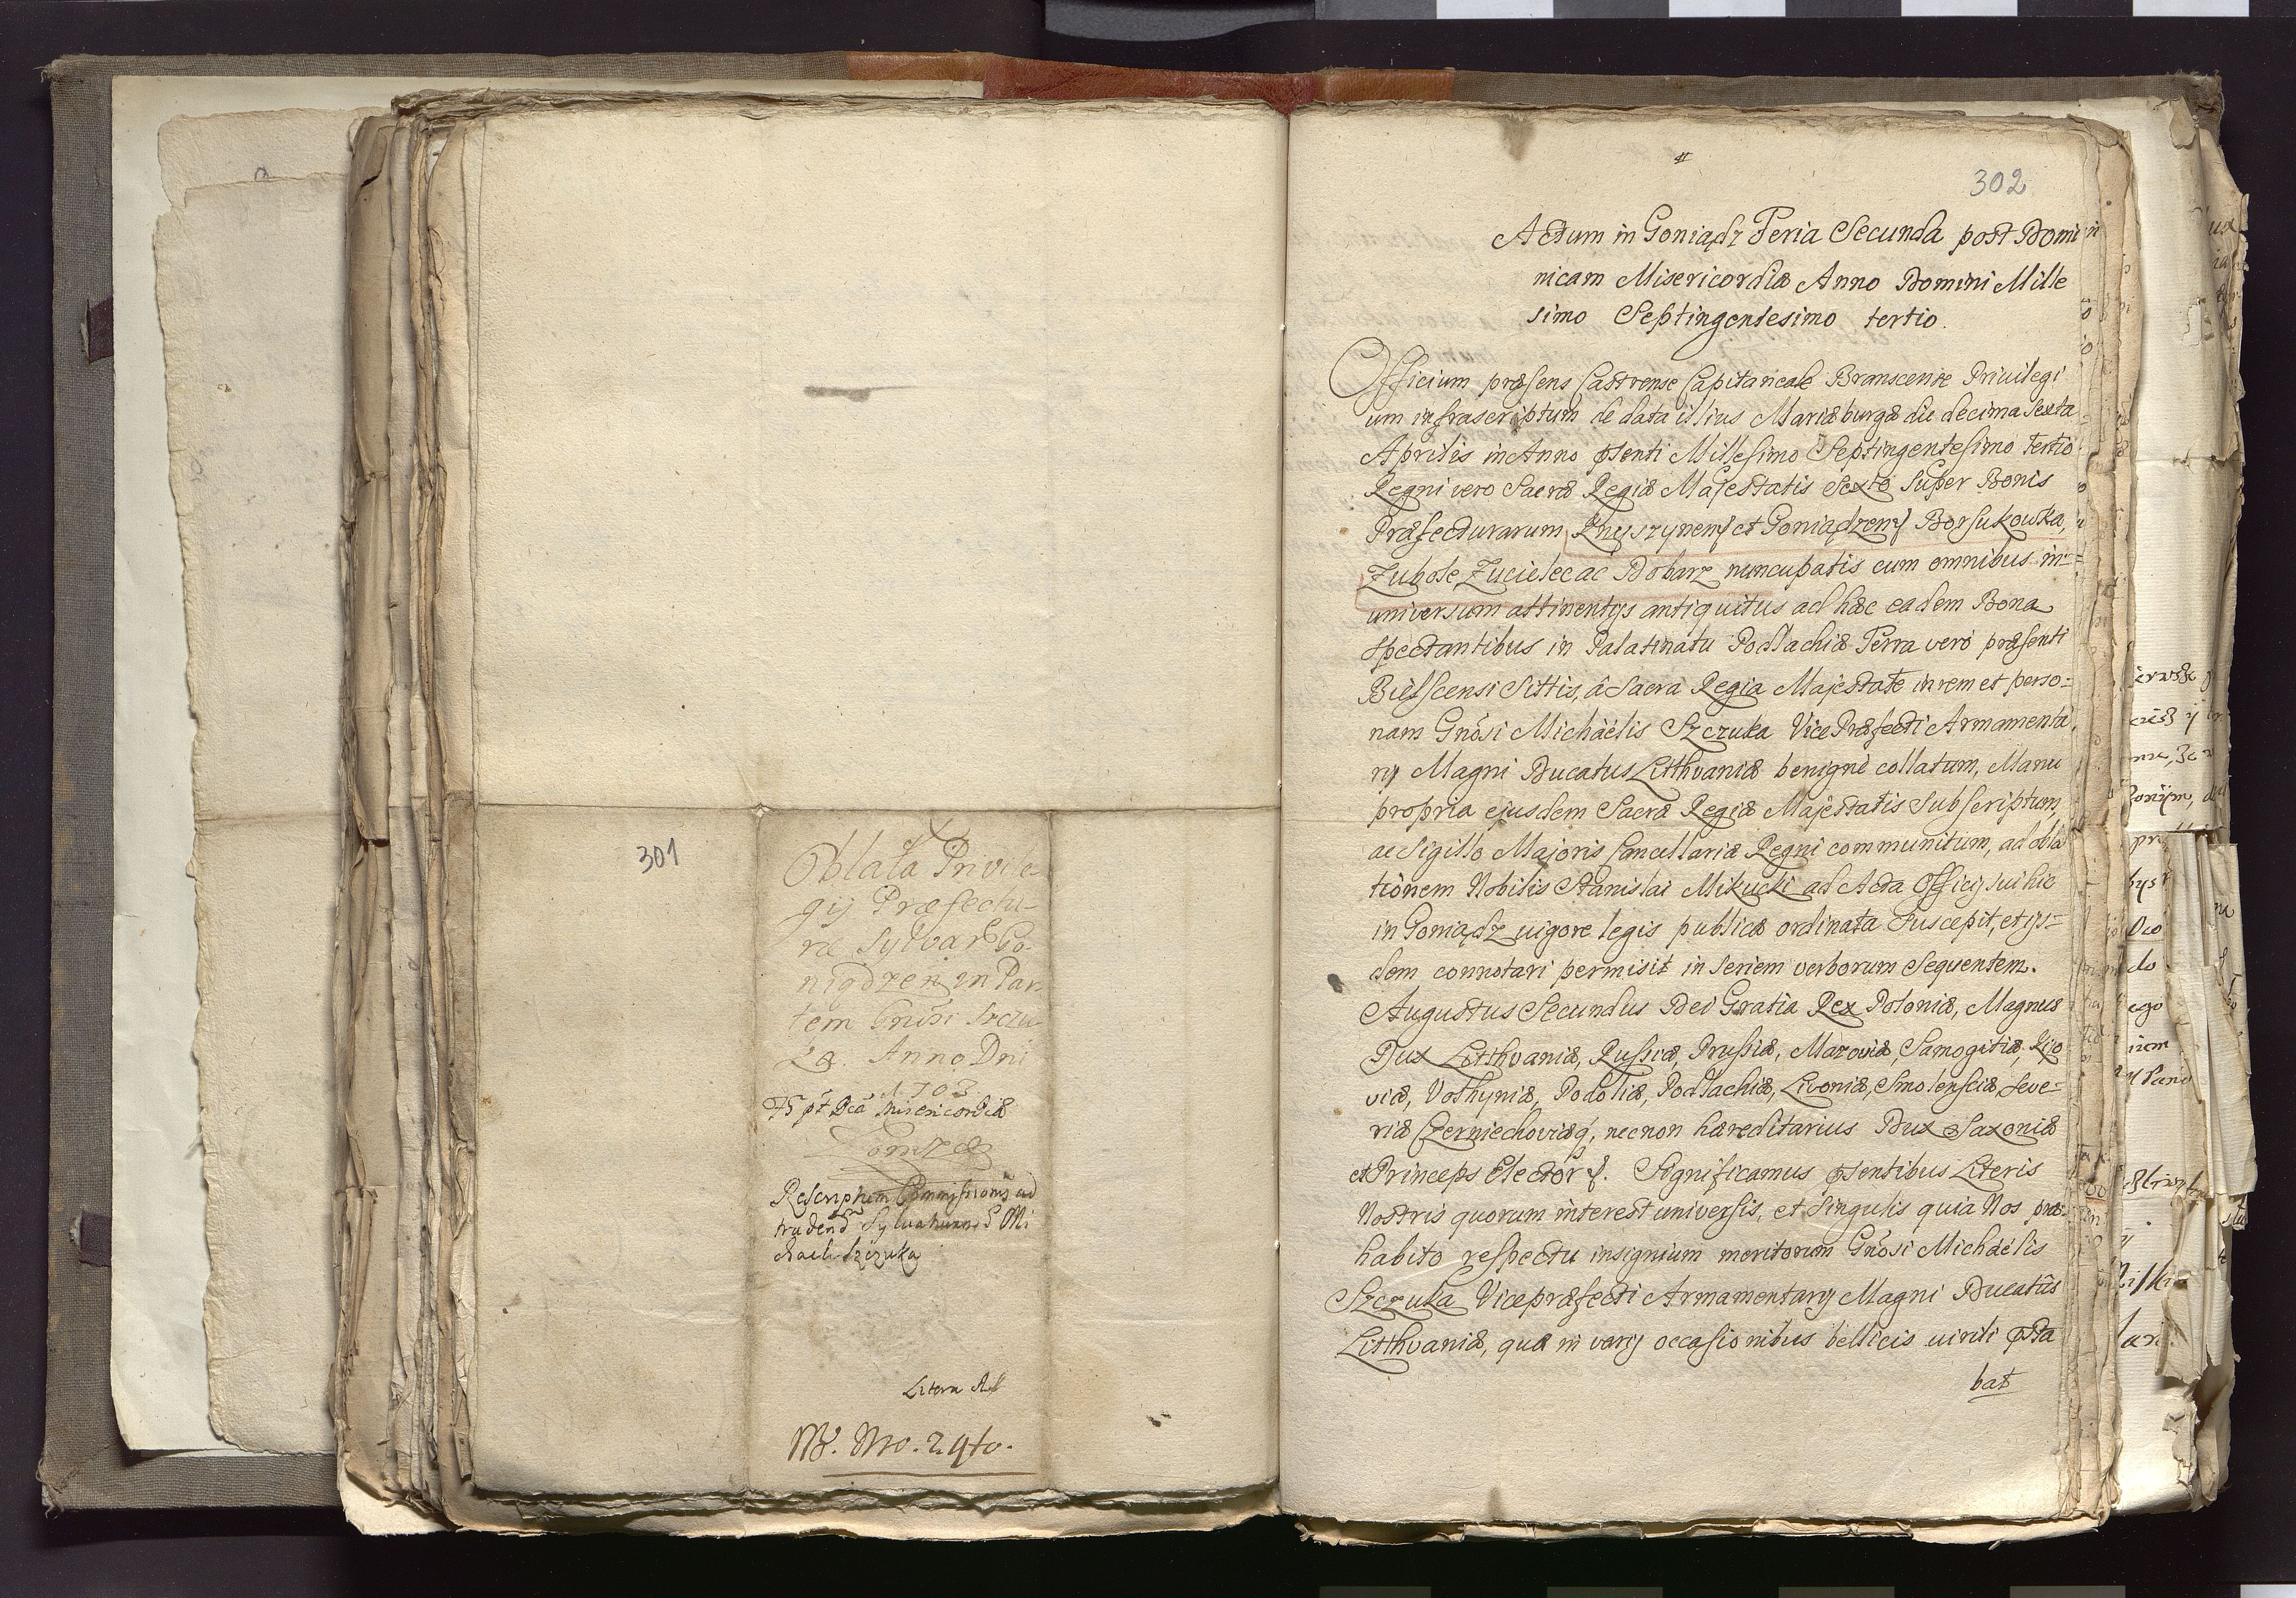 301
Oblata Privile-
gij Præfectu-
ræ Sylvar Go-
niądzen in Par
tem Gnosi Szczu
ka. Anno Dni
1703
F 2 pt Dcā Misericordiæ
Rescriptum Commissionis ad
tradend Sylvas
chaeli Szczuka
Litera A
No. 2 4to.
302
Actum in Goniądz Feria Secunda post Domi
nicam Misericordiæ Anno Domini Mille
simo Septingentesimo tertio.
Officium præsens Castrense Capitaneale Branscense Privilegi
um infrascriptum de data illius Mariæburgæ die decima Sexta
Aprilis in Anno pſenti Millesimo Septingentesimo tertio
Regni vero Sacræ Regiæ Majestatis Sexto Super Bonis
Præfecturarum Knyszynens et Goniądzens Borsukowka,
Zubole Zucielec ac Dobarz nuncupatis cum omnibus in=
universum attinentijs antiquitus ad hæc eadem Bona
spectantibus in Palatinatu Podlachiæ Terra vero præsenti
Bielscensi Sittis, â Sacra Regia Majestate in rem et perso=
nam Gnosi Michaëlis Szczuka Vice Præfecti Armamenta
rij Magni Ducatus Litthvaniæ benignè collatum, Manu
propria ejusdem Sacræ Regiæ Majestatis Subscriptum,
ac Sigillo Majoris Cancellariæ Regni communitum, ad obla
tionem Nobilis Stanislai Mikucki ad Acta Officij sui hic
in Goniądz vigore legis publicæ ordinata Suscepit, et ijs=
dem connotari permisit in Seriem verborum Sequentem.
Augustus Secundus Dei Gratia Rex Poloniæ, Magnus
Dux Litthvaniæ, Russiæ, Prussiæ, Mazoviæ, Samogitiæ, Kijo
viæ, Volhyniæ, Podoliæ, Podlachiæ, Livoniæ, Smolensciæ, Seve=
riæ Czerniechoviæq, necnon hæreditarius Dux Saxoniæ
et Princeps Elector &. Significamus pſentibus Literis
Nostris quorum interest universis, et Singulis quia Nos præ
habito respectu insignium meritorum Gnosi Michaëlis
Szczuka Vicepræfecti Armamentarij Magni Ducatûs
Litthvaniæ, quæ in varijs occasionibus bellicis virili pſta
bat